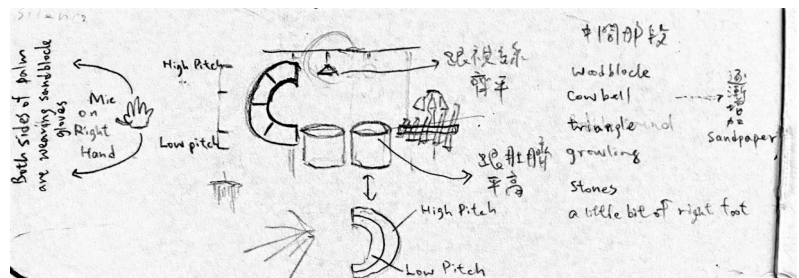 Both sides of palm
are wearing sandblock
gloves
Mic
on
Right
Hand
High Pitch
Low pitch
跟視線
齊平
跟肚臍
平高
High Pitch
Low Pitch
中間那段
woodblock
cowbell
triangle
growling
stones
a little bit of right foot
逐漸
sandpaper